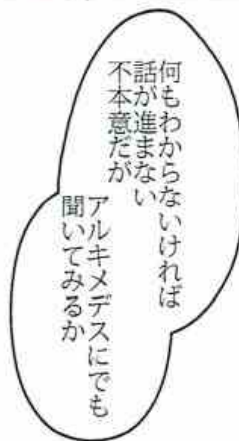 何もわからないければ
話が進まない
不本意だが
アルキメデスにでも
聞いてみるか